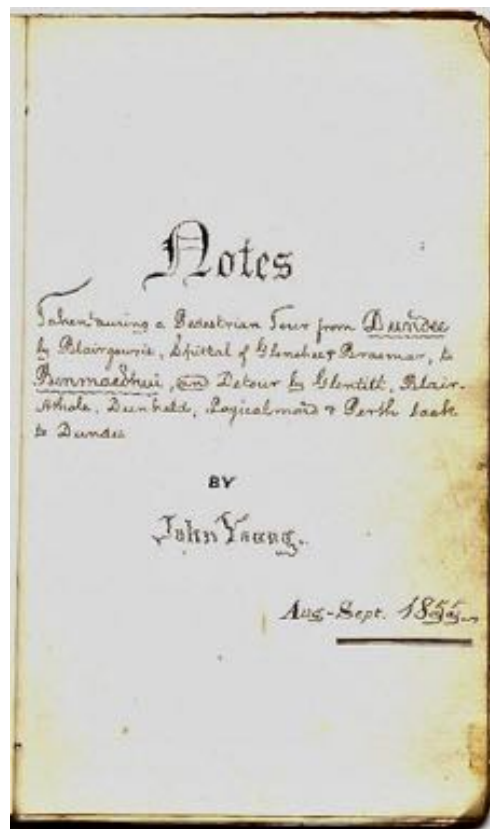 Notes
Taken during a Pedestrian Tour from Dundee
by Blairgowrie, Spittal of Glenshee & Braemar, to
Benmacdhui, and Detour by Glentilt, Blair-
Athole, Dunkeld, Logiealmond & Perth back
to Dundee
BY
John Young.
Aug-Sept. 1855.